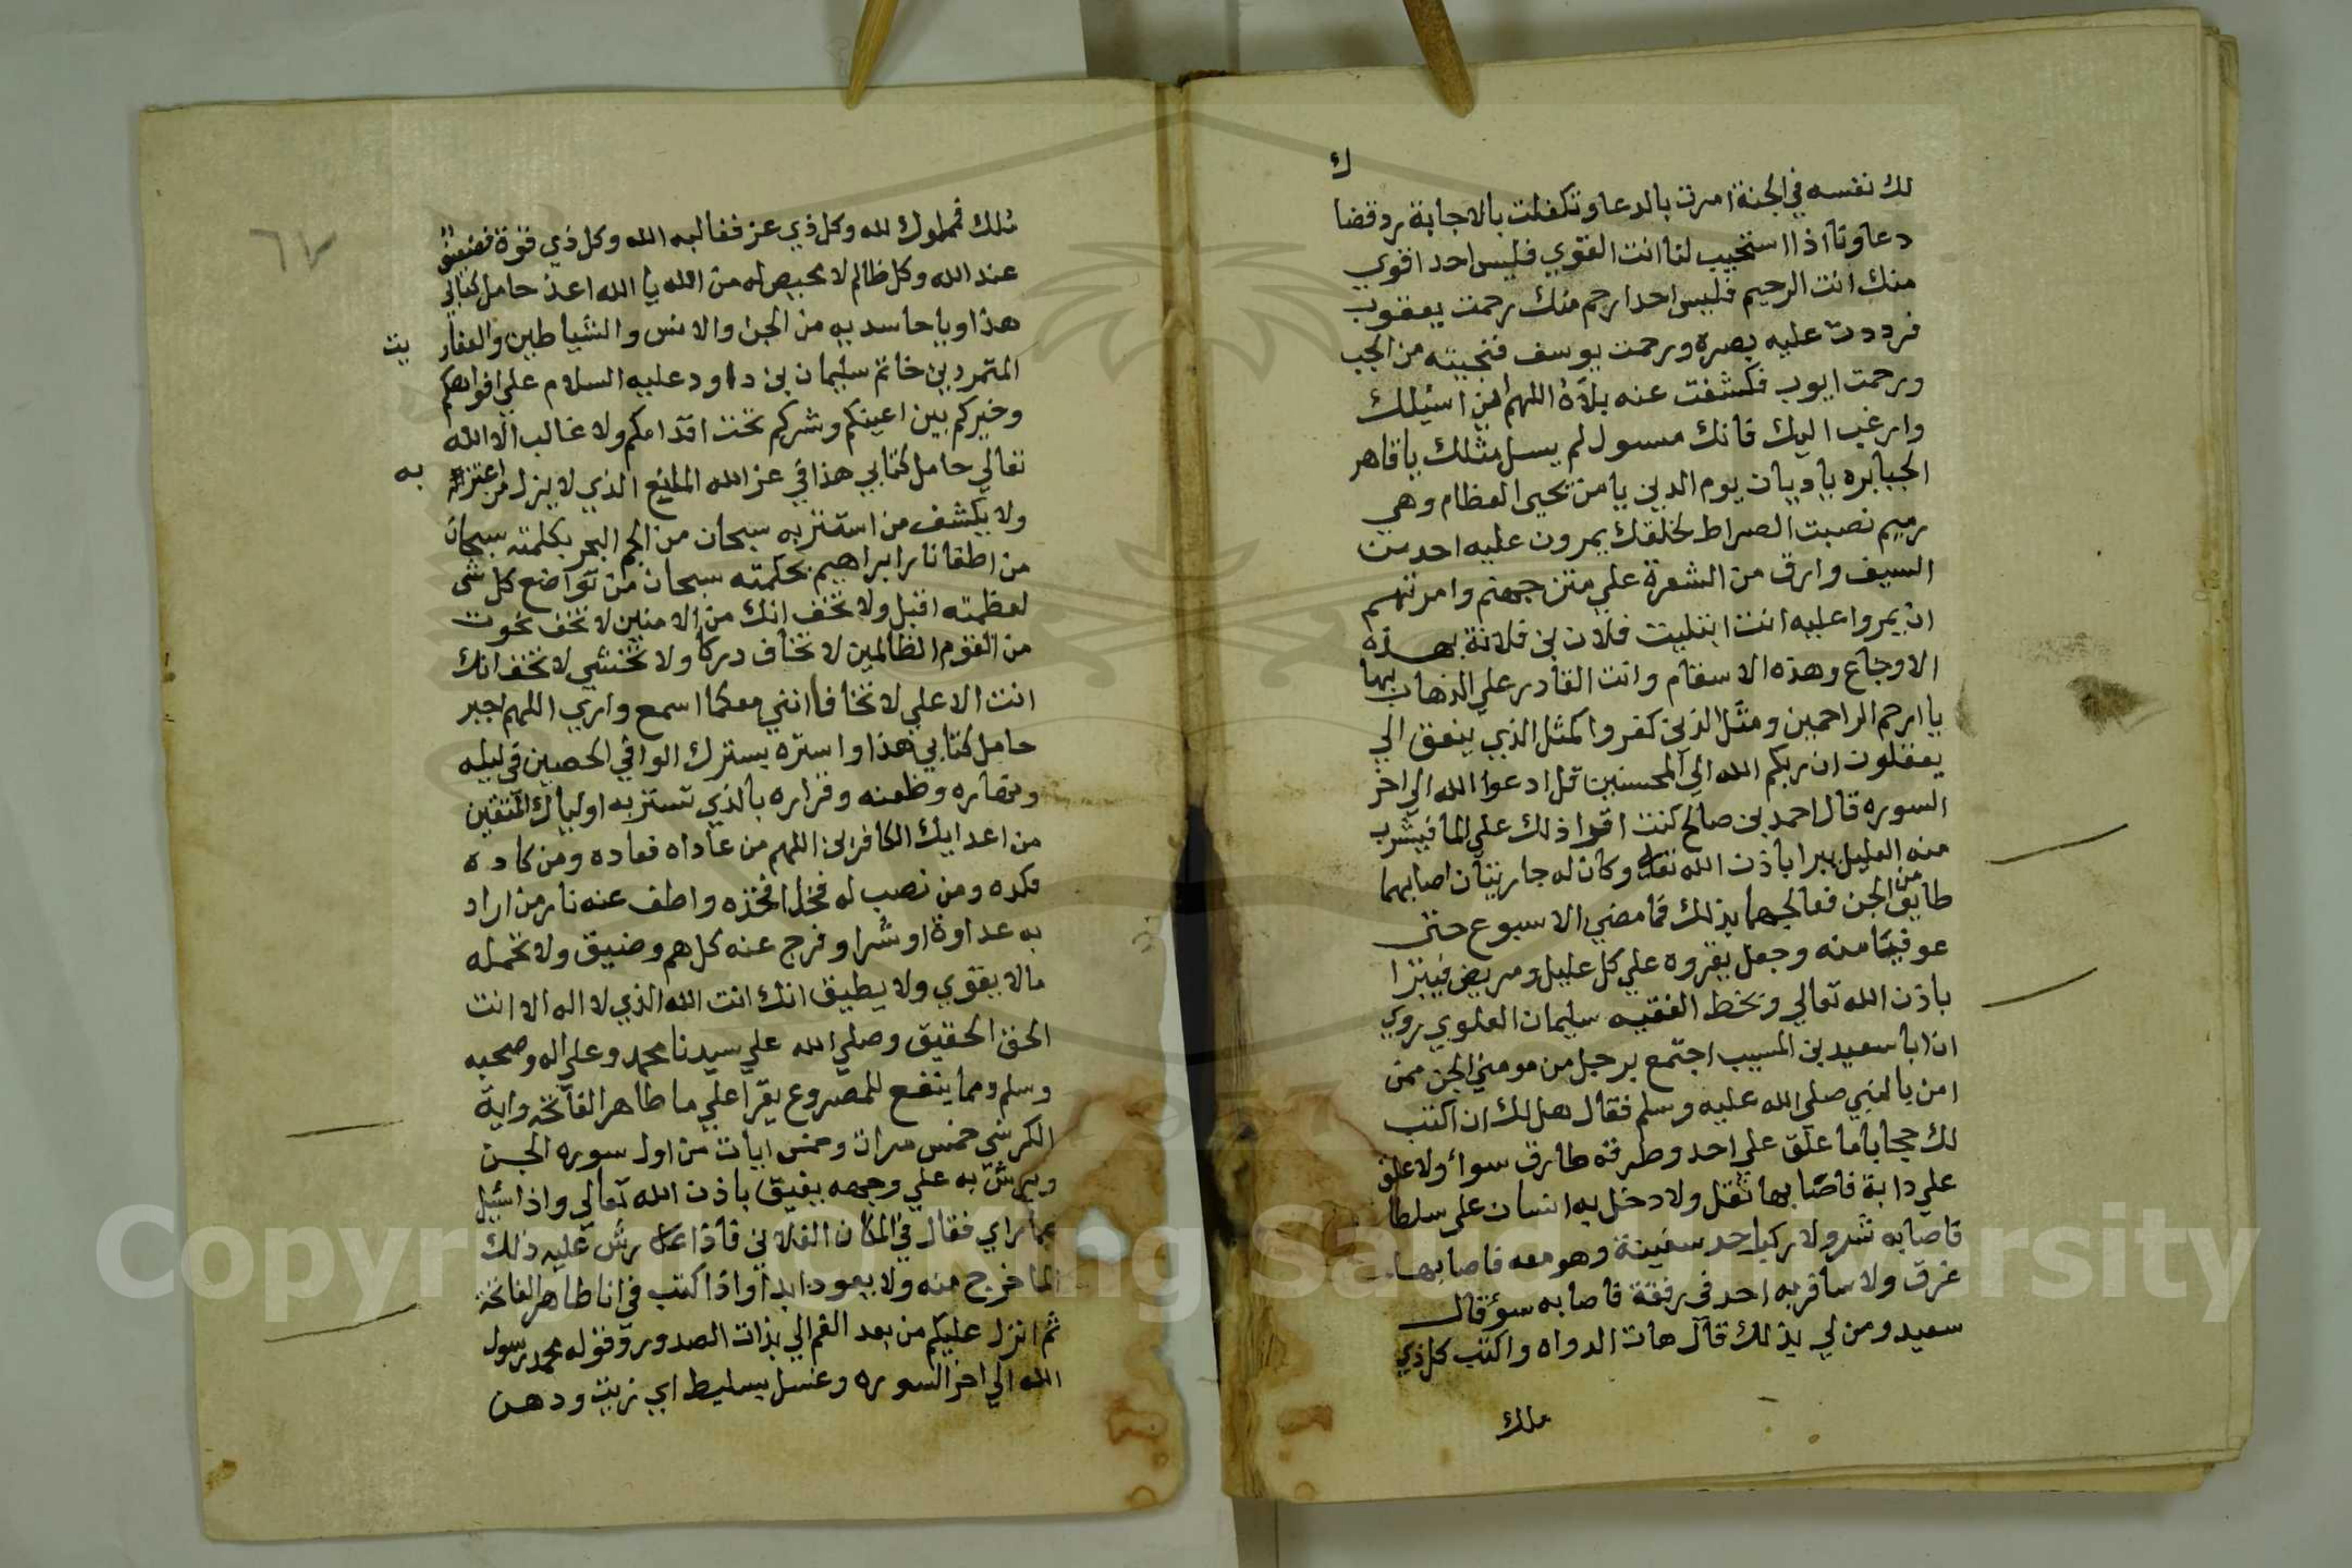 ك
لك نفسه في الجنة امرت بالدعا وتكفلت بالاجابة بردقضا
دعاونا اذا استجيب لنا انت القوي فليس احد اقوي
منك انت الرحيم فليس احد ارحم منك رحمت يعقوب
فرددت عليه بصره ورحمت يوسف فنجيته من الجب
ورحمت ايوب فكشفت عنه بلاه اللهم اني اسئلك
وارغب اليك فانك مسول لم يسل مثلك يا قاهر
الجبابره يا ديان يوم الدين يا من تحيى العظام وهي
رميم نصبت الصراط لخلقك يمرون عليه احد من
السيف وارق من الشعرة علي متن جهنم وامرتهم
ان يمروا عليه انت ابتليت فلان بن فلانة بهذه
الاوجاع وهذه الاسقام وانت القادر علي الذهاب بها
يا ارحم الراحمين ومثل الذين كفروا كمثل الذي ينعق الي
يعقلون ان ربكم الله الي المحسنين قل ادعوا الله الي اخر
السوره قال احمد بن صالح كنت اقرا ذلك علي الما فيشرب
منه العليل يبرا باذن الله تعالى وكان له جاريتان اصابهما
طايف من الجن فعالجهما بذلك فما مضي الاسبوع حتى
عوفيتا منه وجعل يقروه علي كل عليل ومريض فيبرا
باذن الله تعالي وبخط الفقيه سليمان العلوي روي
ان ابا سعيد بن المسيب اجتمع برجل من مومني الجن ممن
امن بالنبي صلي الله عليه وسلم فقال هل لك ان اكتب
لك حجابا ما علق علي احد وطرقه طارق سواء ولا علق
علي دابة فاصابها ثقل ولا دخل به انسان على سلطا
فاصابه شر ولا ركب احد سفينة وهو معه فاصابها
غرق ولا سافر به احد في رفقة فاصابه سوء قال
سعيد ومن لي بذلك قال هات الدواه واكتب كل ذي
ملك
٦٧
ملك فمملوك لله وكل ذي عز فغالبه الله وكل ذي قوة فضعيف
عند الله وكل ظالم لا محيص له من الله يا الله اعذ حامل كتابي
هذا ويا حاسديه من الجن والانس والشياطين والعفار
يت
المتمردين خاتم سليمان بن داود عليه السلام علي افواهكم
وخيركم بين اعينكم وشركم تحت اقدامكم ولا غالب الا الله
تعالي حامل كتابي هذا في عز الله المانع الذي لا يزل من اعتز
به
ولا يكشف من استتر به سبحان من الجم البحر بكلمته سبحان
من اطفا نار ابراهيم بحكمته سبحان من تواضع كل شى
لعظمته اقبل ولا تخف انك من الامنين لا تخف نجوت
من القوم الظالمين لا تخاف دركا ولا تخشي لا تخف انك
انت الاعلي لا تخافا انني معكما اسمع واري اللهم اجبر
حامل كتابي هذا واستره بسترك الوافي الحصين في ليله
ونهاره وظعنه وقراره بالذي تستر به اولياك المتقين
من اعدايك الكافرين اللهم من عاداه فعاده ومن كاده
فكده ومن نصب له فخا فخذه واطف عنه نار من اراد
به عداوة او شرا وفرج عنه كل هم وضيق ولا تحمله
مالا يقوي ولا يطيق انك انت الله الذي لا اله الا انت
الحق الحقيق وصلي الله علي سيدنا محمد وعلي اله وصحبه
وسلم ومما ينفع للمصروع يقرا علي ما طاهر الفاتحه واية
الكرسي خمس مرات وخمس ايات من اول سوره الجن
ويرش به علي وجهه يفيق باذن الله تعالي واذا سئيل
عما راي فقال في المكان الفلاني فاذا رش عليه ذلك
الما خرج منه ولا يعود ابدا واذا كتب في انا طاهر الفاتحة
ثم انزل عليكم من بعد الغم الي بذات الصدور وقوله محمد رسول
الله الي اخر السوره وغسل بسليط اي زيت ودهن